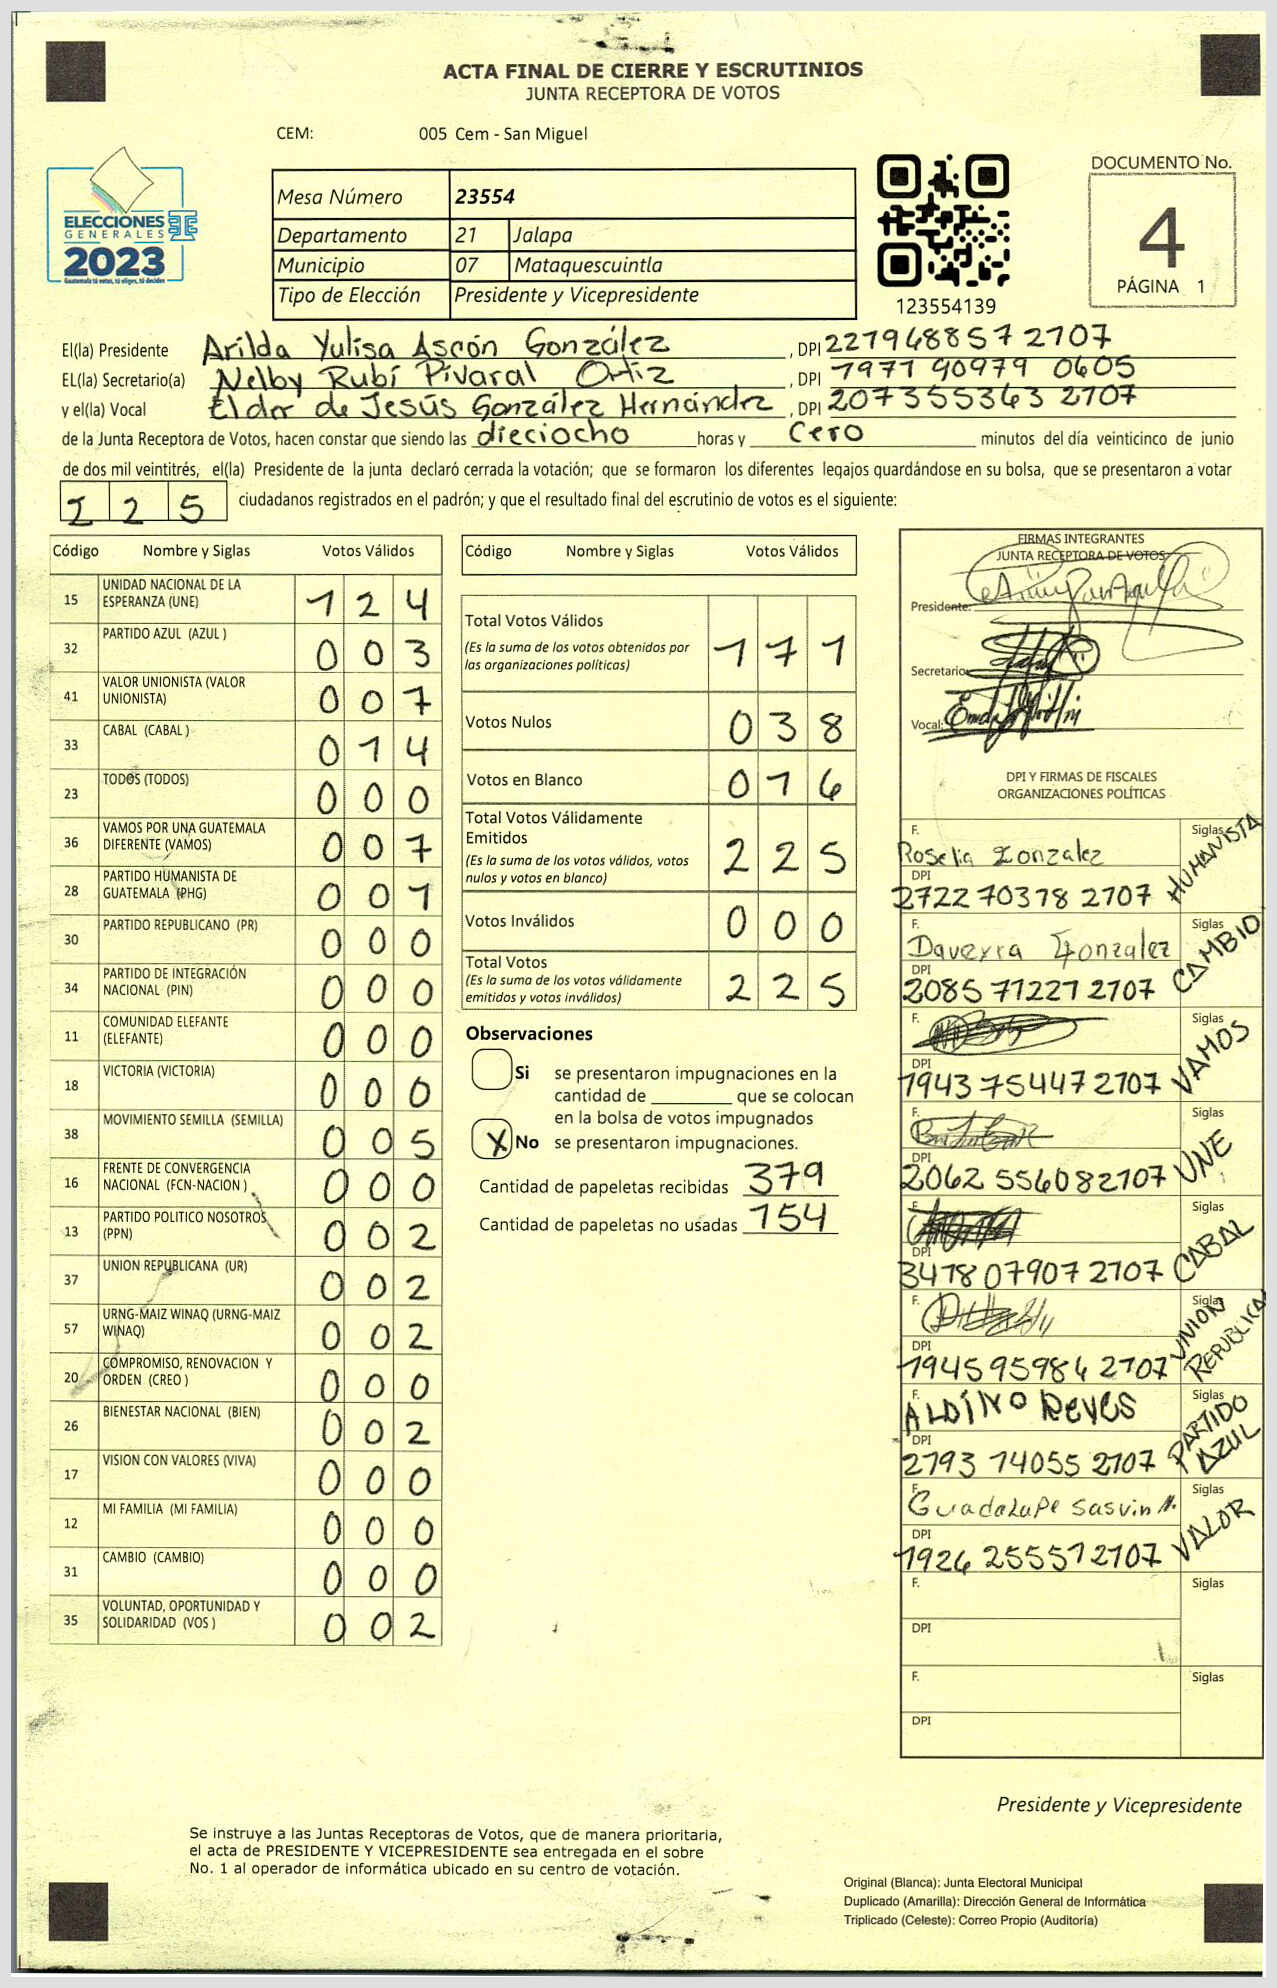 ACTA FINAL DE CIERRE Y ESCRUTINIOS
JUNTA RECEPTORA DE VOTOS
CEM: 005 Cem - San Miguel
ELECCIONES
GENERALES
2023
Guatemala tú votas, tú eliges, tú decides
Mesa Número 23554
Departamento 21 Jalapa
Municipio 07 Mataquescuintla
Tipo de Elección Presidente y Vicepresidente
123554139
DOCUMENTO No.
4
PÁGINA 1
El(la) Presidente Arilda Yulisa Ascón González, DPI 2219688572107
EL(la) Secretario(a) Nelby Rubí Pivaral Ortiz, DPI 1971 90979 0605
y el(la) Vocal Elder de Jesús González Hernández, DPI 207355363 2107
de la Junta Receptora de Votos, hacen constar que siendo las dieciocho horas y cero minutos del día veinticinco de junio
de dos mil veintitrés, el(la) Presidente de la junta declaró cerrada la votación; que se formaron los diferentes legajos quardándose en su bolsa, que se presentaron a votar
225 ciudadanos registrados en el padrón; y que el resultado final del escrutinio de votos es el siguiente:
Código Nombre y Siglas Votos Válidos
15 UNIDAD NACIONAL DE LA ESPERANZA (UNE) 124
32 PARTIDO AZUL (AZUL ) 003
41 VALOR UNIONISTA (VALOR UNIONISTA) 007
33 CABAL (CABAL ) 014
23 TODOS (TODOS) 000
36 VAMOS POR UNA GUATEMALA DIFERENTE (VAMOS) 007
28 PARTIDO HUMANISTA DE GUATEMALA (PHG) 001
30 PARTIDO REPUBLICANO (PR) 000
34 PARTIDO DE INTEGRACIÓN NACIONAL (PIN) 000
11 COMUNIDAD ELEFANTE (ELEFANTE) 000
18 VICTORIA (VICTORIA) 000
38 MOVIMIENTO SEMILLA (SEMILLA) 005
16 FRENTE DE CONVERGENCIA NACIONAL (FCN-NACION ) 000
13 PARTIDO POLITICO NOSOTROS (PPN) 002
37 UNION REPUBLICANA (UR) 002
57 URNG-MAIZ WINAQ (URNG-MAIZ WINAQ) 002
20 COMPROMISO, RENOVACION Y ORDEN (CREO ) 000
26 BIENESTAR NACIONAL (BIEN) 002
17 VISION CON VALORES (VIVA) 000
12 MI FAMILIA (MI FAMILIA) 000
31 CAMBIO (CAMBIO) 000
35 VOLUNTAD, OPORTUNIDAD Y SOLIDARIDAD (VOS ) 002
Código Nombre y Siglas Votos Válidos
Total Votos Válidos 171
(Es la suma de los votos obtenidos por
las organizaciones políticas)
Votos Nulos 038
Votos en Blanco 016
Total Votos Válidamente
Emitidos 225
(Es la suma de los votos válidos, votos
nulos y votos en blanco)
Votos Inválidos 000
Total Votos 225
(Es la suma de los votos válidamente
emitidos y votos inválidos)
Observaciones
Si se presentaron impugnaciones en la
cantidad de ________ que se colocan
en la bolsa de votos impugnados
X No se presentaron impugnaciones.
Cantidad de papeletas recibidas 379
Cantidad de papeletas no usadas 154
FIRMAS INTEGRANTES
JUNTA RECEPTORA DE VOTOS
Presidente:
Secretario:
Vocal:
DPI Y FIRMAS DE FISCALES
ORGANIZACIONES POLÍTICAS
F. Roselia Gonzalez Siglas HUMANISTA
DPI 2722 70378 2107
F. Gonzalez Siglas CAMBIO
DPI 2085 71221 2107
F. Siglas VAMOS
DPI 1943 75447 2107
F. Siglas UNE
DPI 2062 55608 2107
F. Siglas CABAL
DPI 3478 07907 2107
F. Siglas UNION REPUBLICA
DPI 1945 95984 2107
F. ALDINO Reyes Siglas PARTIDO AZUL
DPI 2793 14055 2107
F. Guadalupe Sasvin N. Siglas VALOR
DPI 1926 25551 2107
F. Siglas
DPI
F. Siglas
DPI
Presidente y Vicepresidente
Se instruye a las Juntas Receptoras de Votos, que de manera prioritaria,
el acta de PRESIDENTE Y VICEPRESIDENTE sea entregada en el sobre
No. 1 al operador de informática ubicado en su centro de votación.
Original (Blanca): Junta Electoral Municipal
Duplicado (Amarilla): Dirección General de Informática
Triplicado (Celeste): Correo Propio (Auditoría)